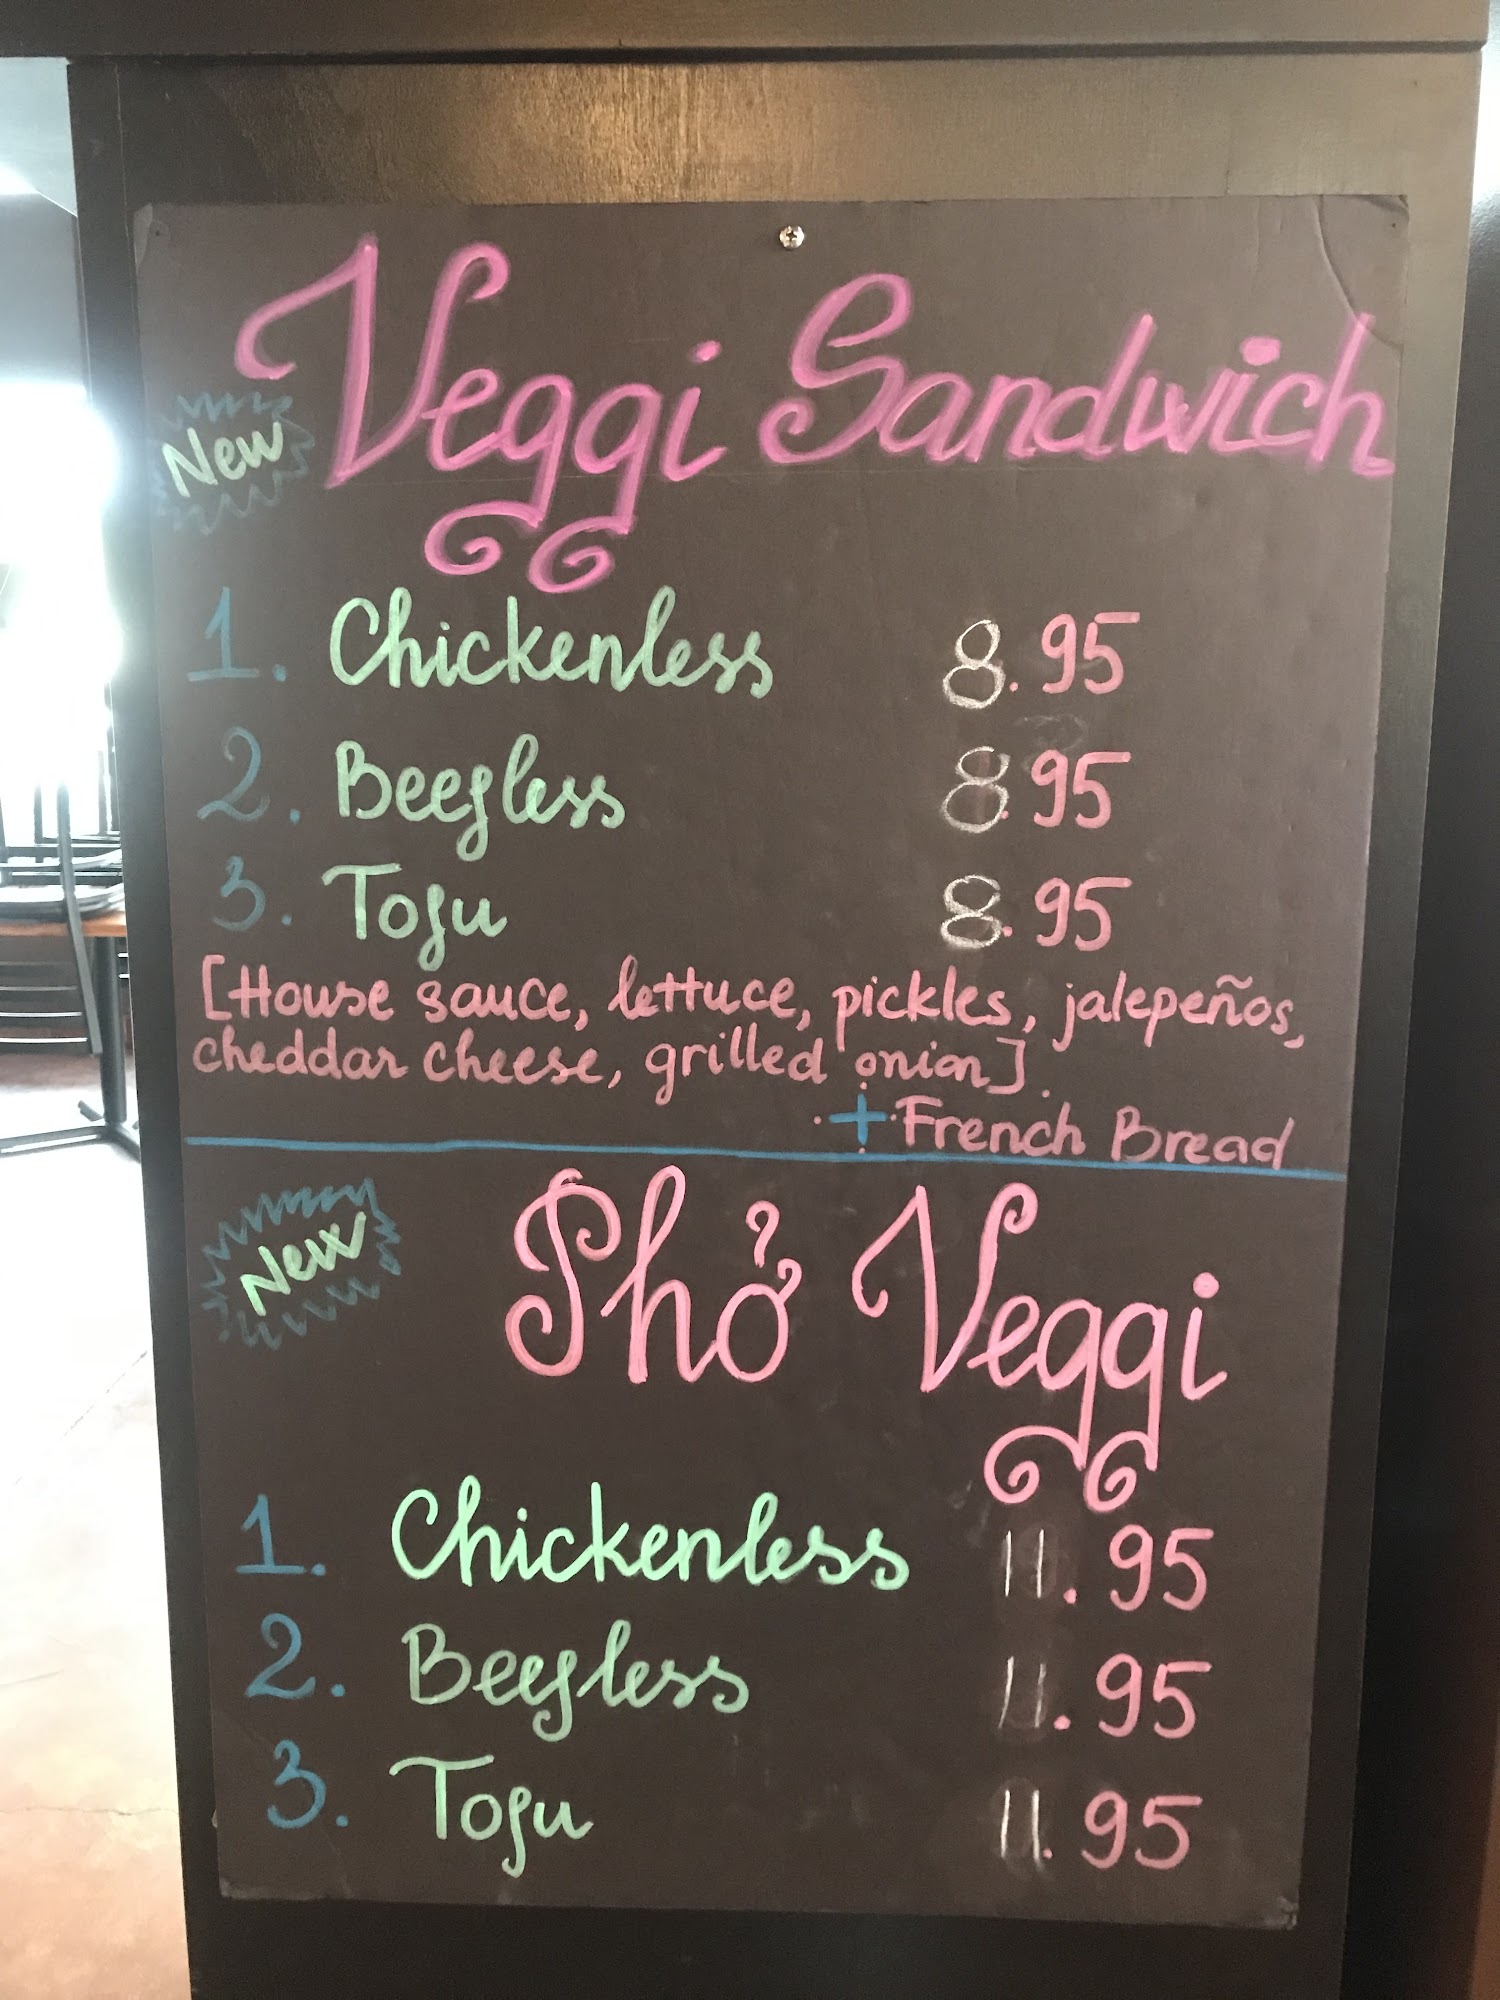 Veggi Sandwich
New
1. Chickenless 8.95
2. Beefless 8.95
3. Tofu 8.95
[House sauce, lettuce, pickles, jalepeños,
cheddar cheese, grilled onion].
+ French Bread
New
Phở Veggi
1. Chickenless 11.95
2. Beefless 11.95
3. Tofu 11.95